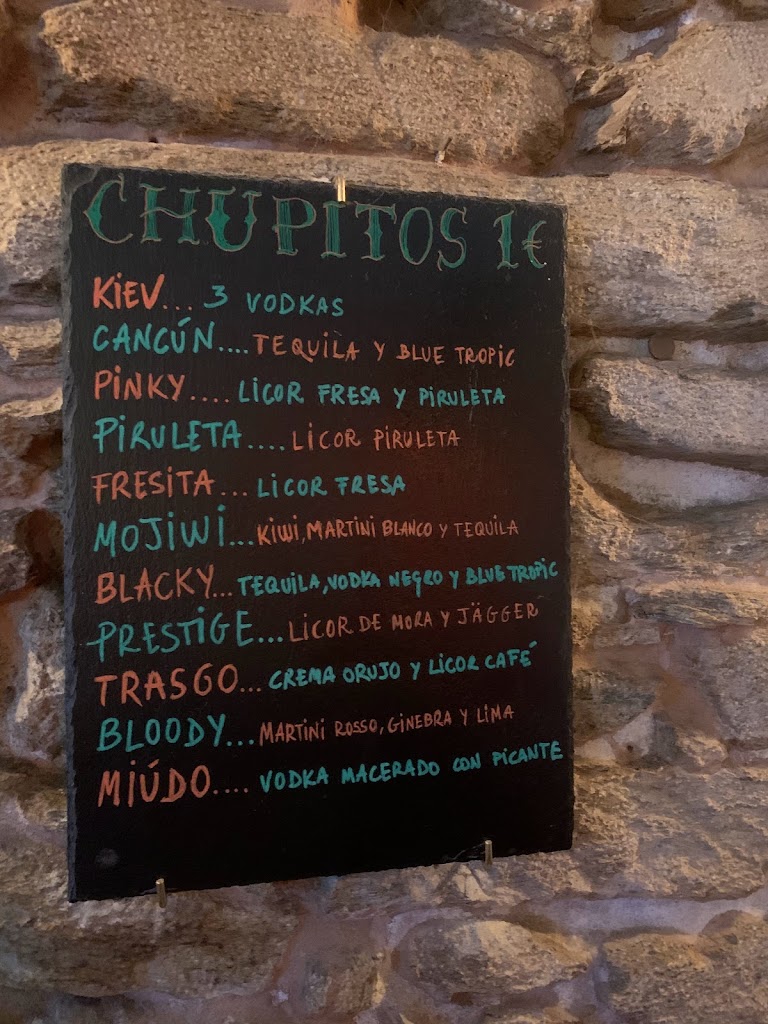 CHUPITOS 1€
KIEV... 3 VODKAS
CANCÚN.... TEQUILA Y BLUE TROPIC
PINKY.... LICOR FRESA Y PIRULETA
PIRULETA.... LICOR PIRULETA
FRESITA... LICOR FRESA
MOJIWI... KIWI, MARTINI BLANCO Y TEQUILA
BLACKY... TEQUILA, VODKA NEGRO Y BLUE TROPIC
PRESTIGE... LICOR DE MORA Y JÄGGER
TRASGO... CREMA ORUJO Y LICOR CAFÉ
BLOODY... MARTINI ROSSO, GINEBRA Y LIMA
MIÚDO.... VODKA MACERADO CON PICANTE